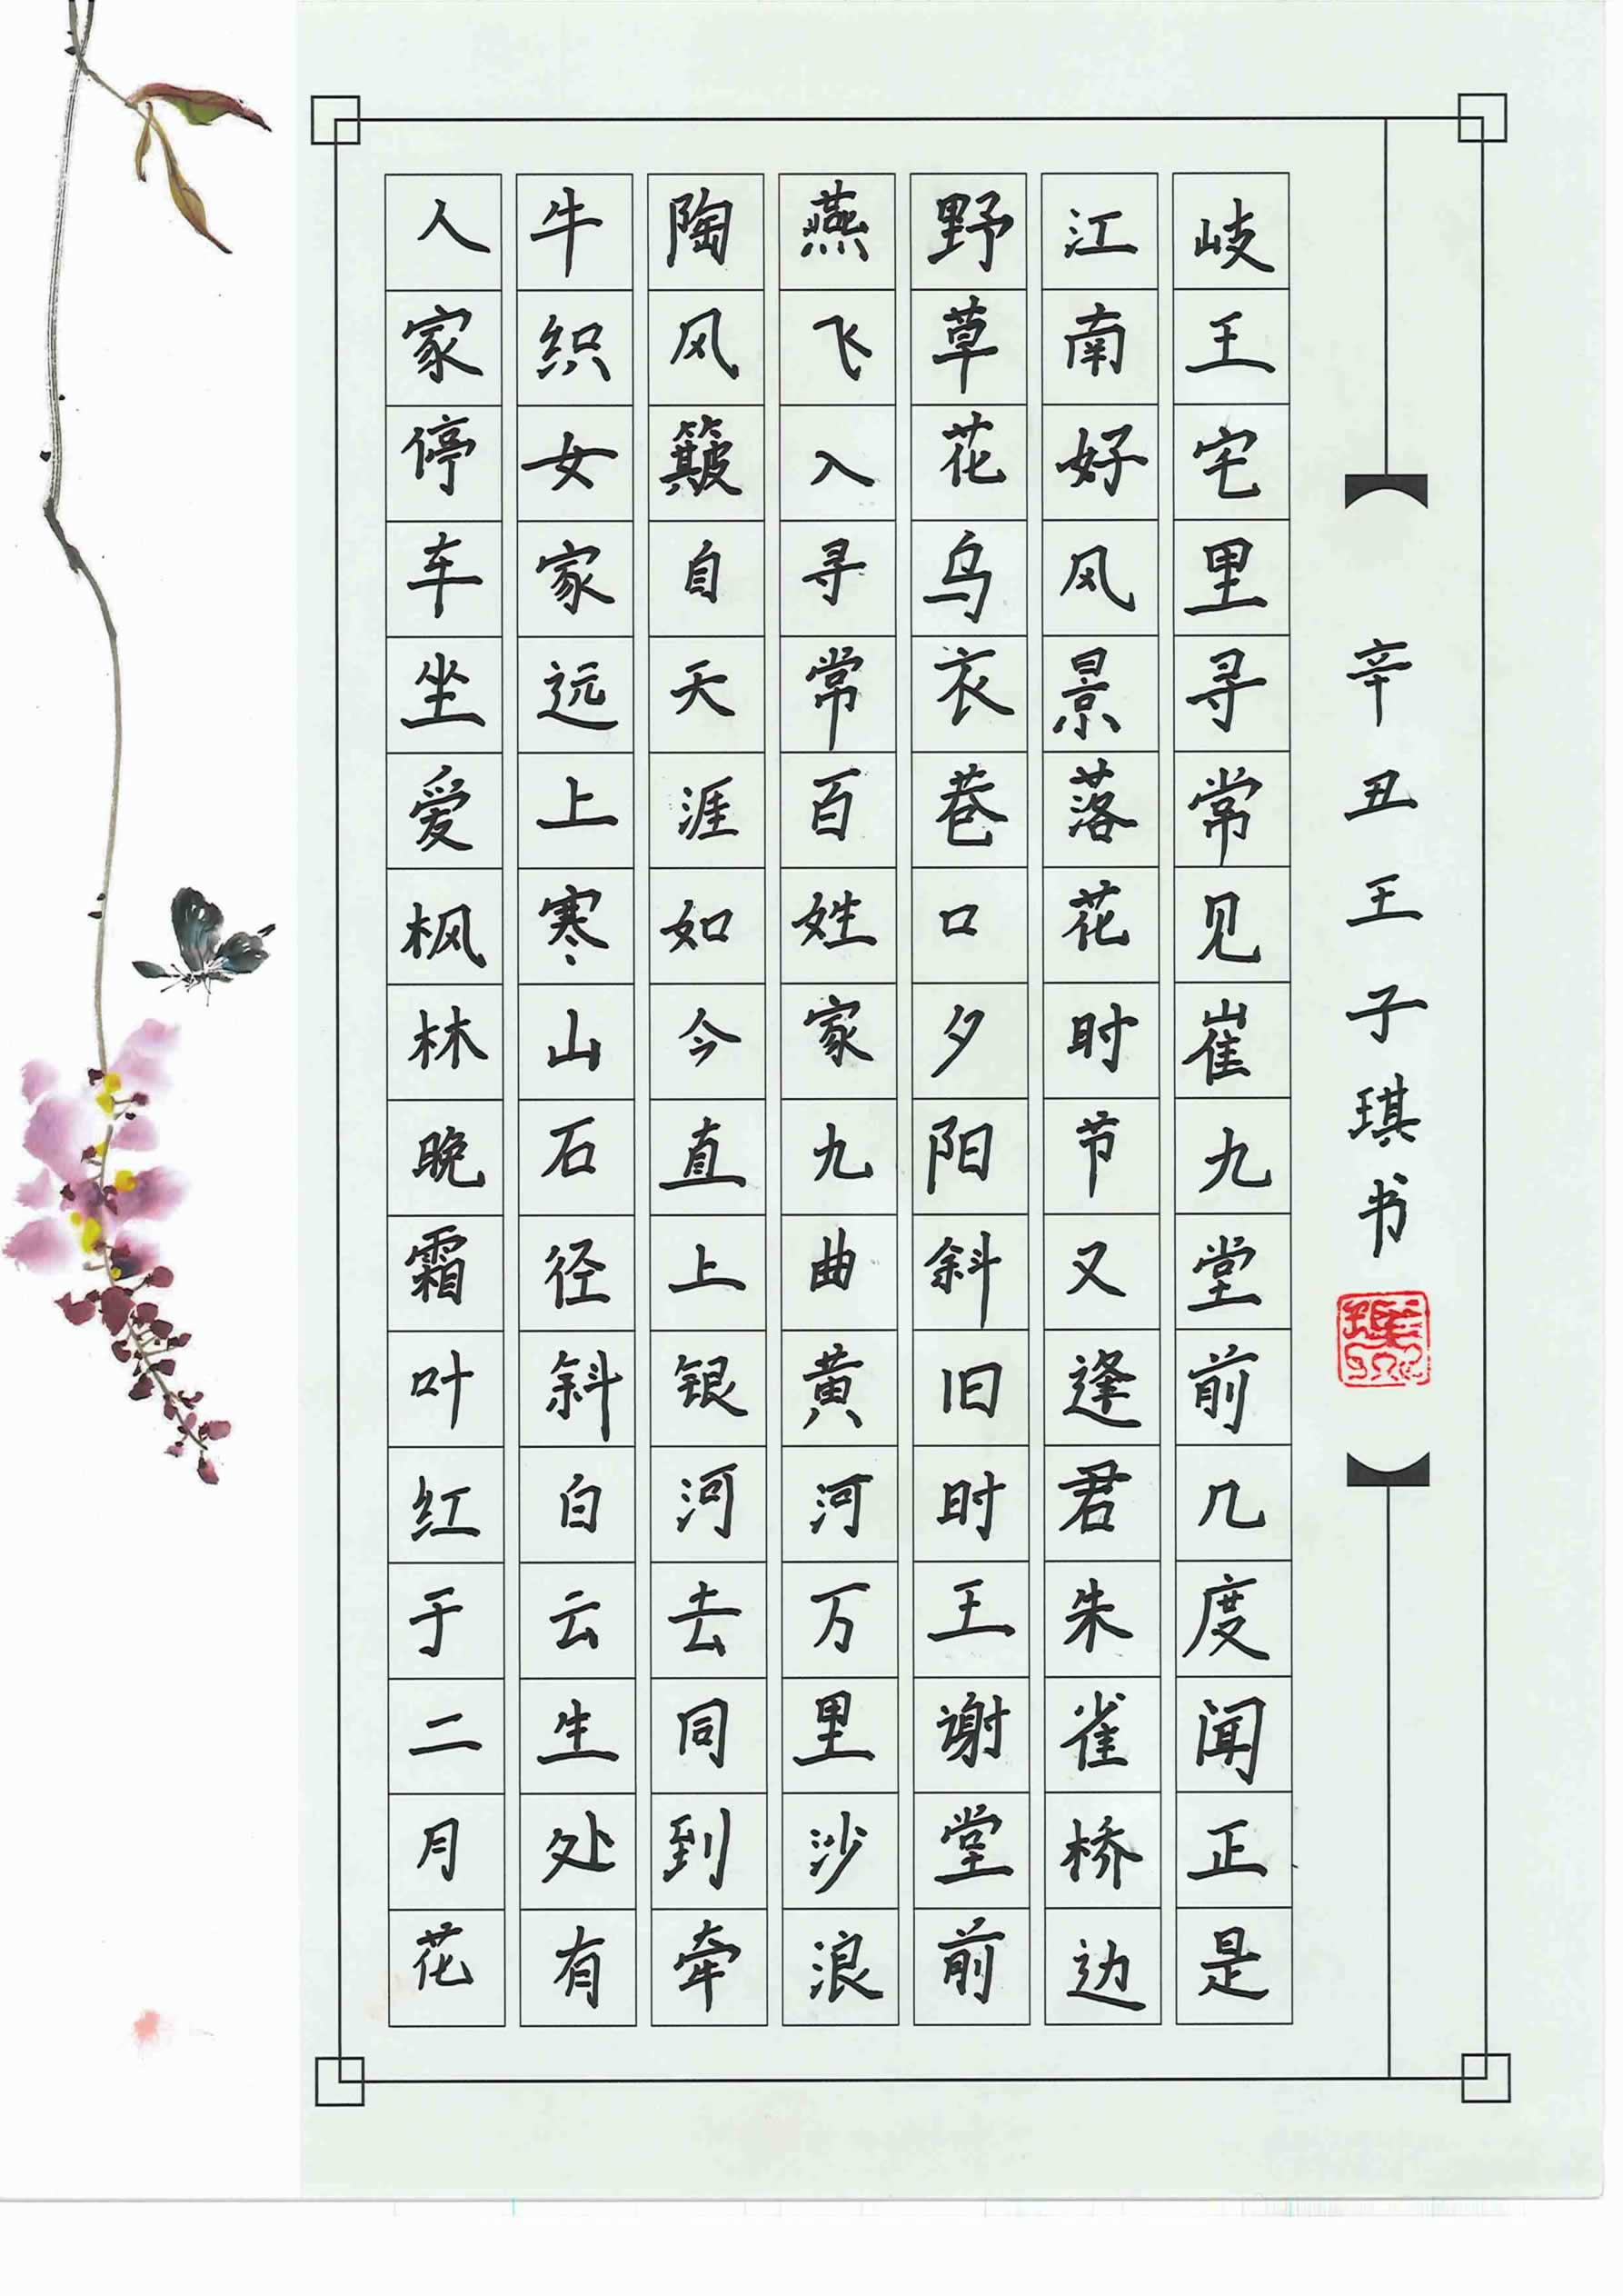 辛丑王子琪书
岐王宅里寻常见崔九堂前几度闻正是
江南好风景落花时节又逢君朱雀桥边
野草花乌衣巷口夕阳斜旧时王谢堂前
燕飞入寻常百姓家九曲黄河万里沙浪
陶风簸自天涯如今直上银河去同到牵
牛织女家远上寒山石径斜白云生处有
人家停车坐爱枫林晚霜叶红于二月花